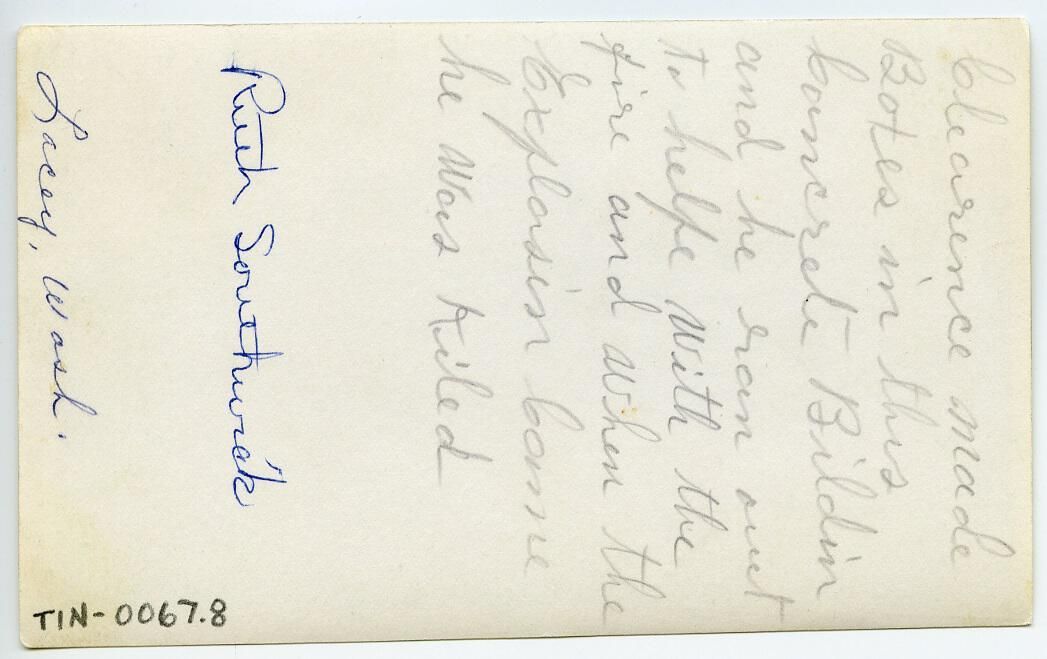 Clearence made
Botes in this
Concrete Bildin
and he ran out
to helpe with the
fire and when the
Explosin Come
he was Kiled
Ruth Southwick
Lacey, Wash.
TIN-0067.8